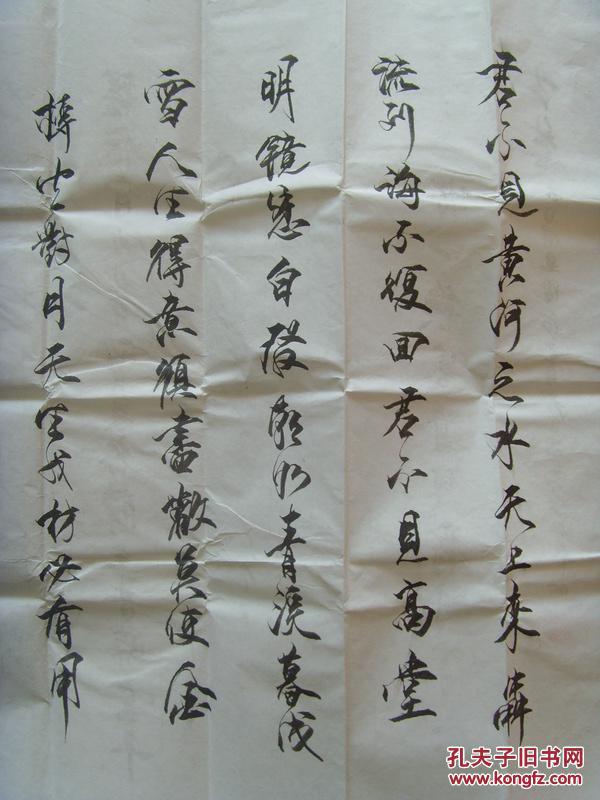 君不見黄河之水天上來奔
流到海不復回君不見高堂
明镜悲白發朝如青暮成
雪人生得意須盡歡莫使金
樽空對月天生我材必有用
孔夫子旧书网
www.kongfz.com